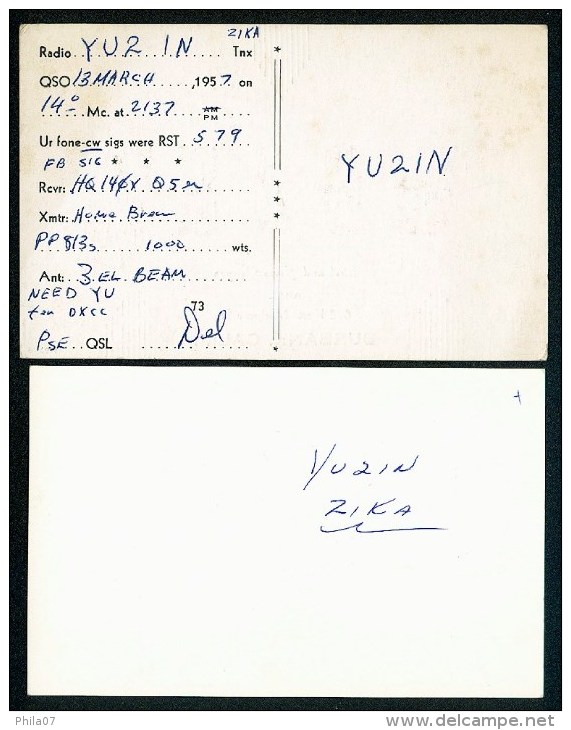 ZIKA
Radio YU2 IN Tnx
QSO 13 MARCH, 1957 on
14⁰ Mc. at 2137 AM PM
Ur fone-cw sigs were RST 579
FB SIG * * *
Rcvr: HQ 140X Q5er
Xmtr: Home Brew
PP 813s 1000 wts.
Ant: 3 EL BEAM
NEED YU
for DXCC 73
PSE QSL Del
YU2IN
YU2IN
ZIKA
Phila07
www.delcampe.net